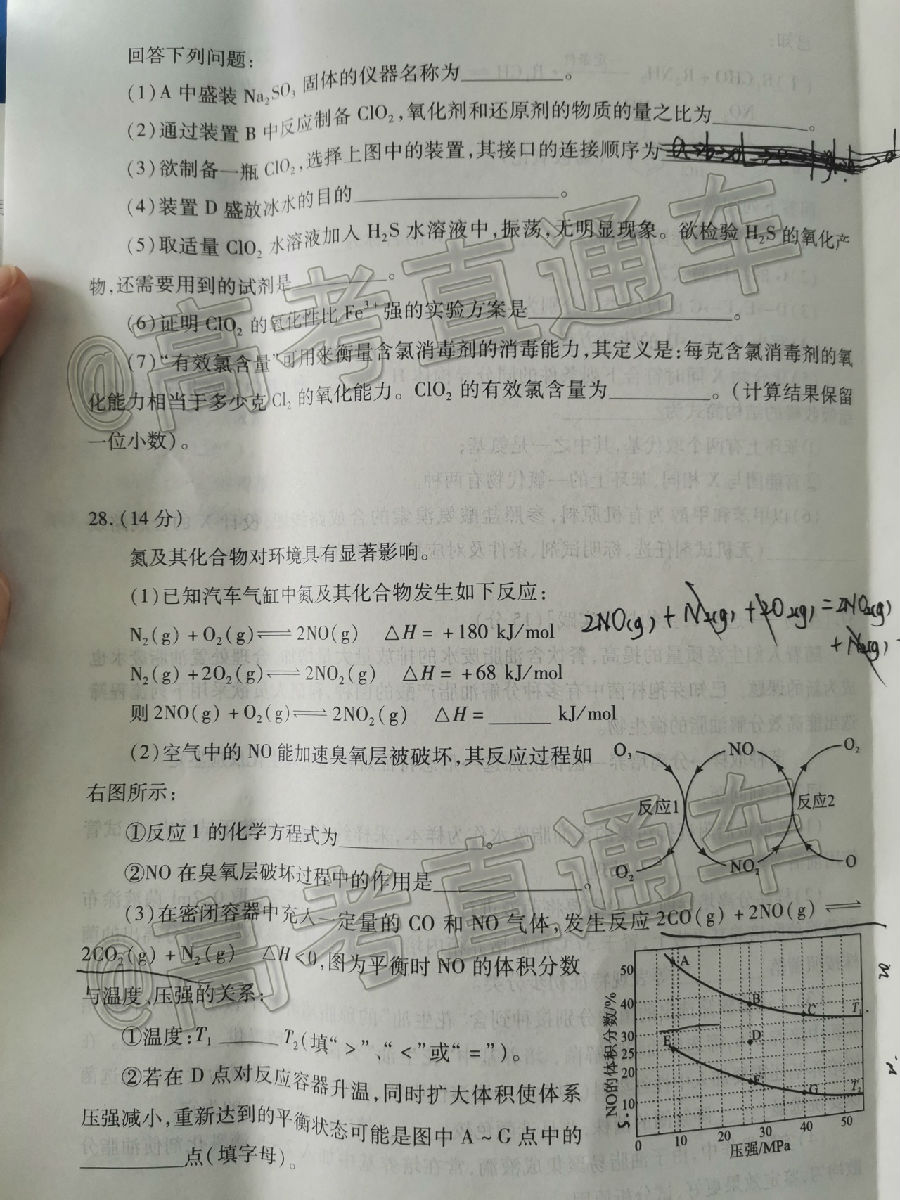 回答下列问题:
(1)A中盛装Na₂SO₃固体的仪器名称为________。
(2)通过装置B中反应制备ClO₂,氧化剂和还原剂的物质的量之比为________。
(3)欲制备一瓶ClO₂,选择上图中的装置,其接口的连接顺序为
(4)装置D盛放冰水的目的________。
(5)取适量ClO₂水溶液加入H₂S水溶液中,振荡,无明显现象。欲检验H₂S的氧化产
物,还需要用到的试剂是________。
(6)证明ClO₂的氧化性比Fe³⁺强的实验方案是________。
(7)“有效氯含量”可用来衡量含氯消毒剂的消毒能力,其定义是:每克含氯消毒剂的氧
化能力相当于多少克Cl₂的氧化能力。ClO₂的有效氯含量为________。(计算结果保留
一位小数)。
28.(14分)
氮及其化合物对环境具有显著影响。
(1)已知汽车气缸中氮及其化合物发生如下反应:
N₂(g)+O₂(g)⇌2NO(g) △H=+180 kJ/mol
2NO(g)+N₂(g)+2O₂(g)=2NO₂(g)
+N₂(g)+
N₂(g)+2O₂(g)⇌2NO₂(g) △H=+68 kJ/mol
则2NO(g)+O₂(g)⇌2NO₂(g) △H=______kJ/mol
(2)空气中的NO能加速臭氧层被破坏,其反应过程如
右图所示:
O₃ NO O₂
反应1 反应2
O₂ NO₂ O
①反应1的化学方程式为________。
②NO在臭氧层破坏过程中的作用是________。
(3)在密闭容器中充入一定量的CO和NO气体,发生反应2CO(g)+2NO(g)⇌
2CO₂(g)+N₂(g) △H<0,图为平衡时NO的体积分数
与温度、压强的关系:
①温度:T₁______T₂(填“>”、“<”或“=”)。
②若在D点对反应容器升温,同时扩大体积使体系
压强减小,重新达到的平衡状态可能是图中A~G点中的
________点(填字母)。
NO的体积分数/%
50
40
30
25
20
10
0 10 20 30 40 50
压强/MPa
A B C D E F G
T₁
T₂
@高考直通车
@高考直通车